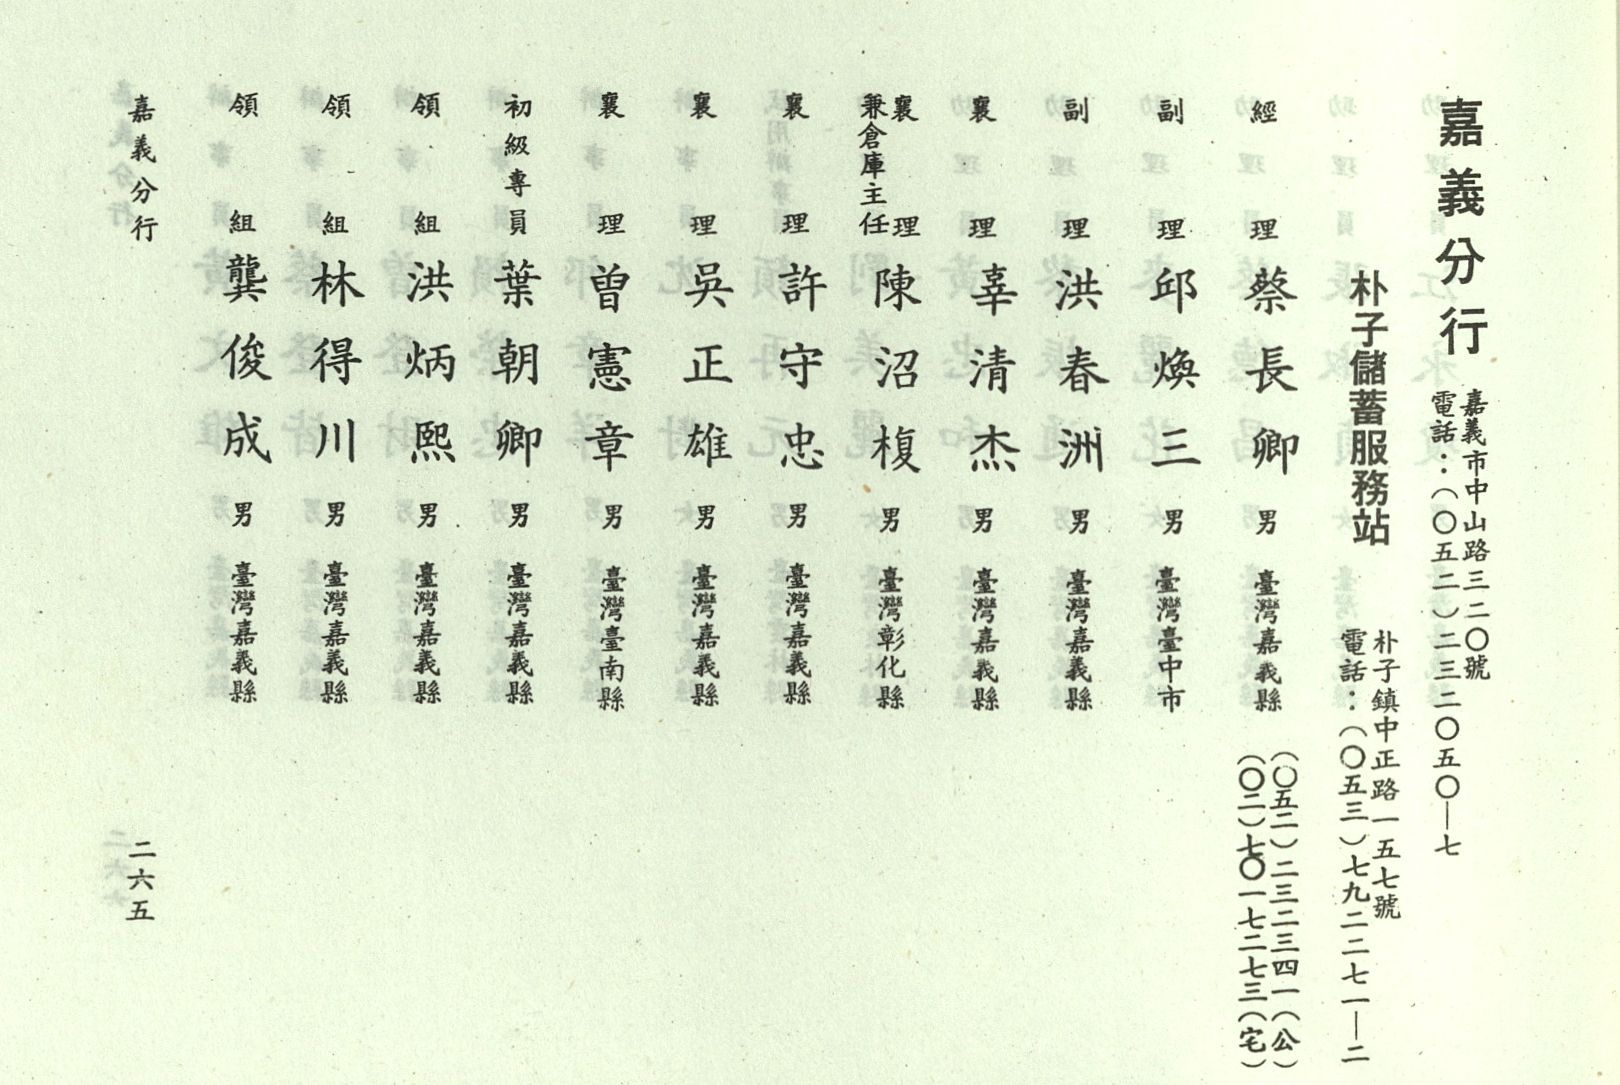 嘉義分行
嘉義市中山路三二〇號
電話：（〇五二）二三二〇五〇—七
朴子儲蓄服務站
朴子鎮中正路一五七號
電話：（〇五三）七九二二七一—二
經理 蔡長卿 男 臺灣嘉義縣
（〇五二）二三二三四一（公）
（〇二）七〇一七二七三（宅）
副理 邱煥三 男 臺灣臺中市
副理 洪春洲 男 臺灣嘉義縣
襄理 辜清杰 男 臺灣嘉義縣
襄理
兼倉庫主任
陳沼榎 男 臺灣彰化縣
襄理 許守忠 男 臺灣嘉義縣
襄理 吳正雄 男 臺灣嘉義縣
襄理 曾憲章 男 臺灣臺南縣
初級專員 葉朝卿 男 臺灣嘉義縣
領組 洪炳熙 男 臺灣嘉義縣
領組 林得川 男 臺灣嘉義縣
領組 龔俊成 男 臺灣嘉義縣
嘉義分行
二六五